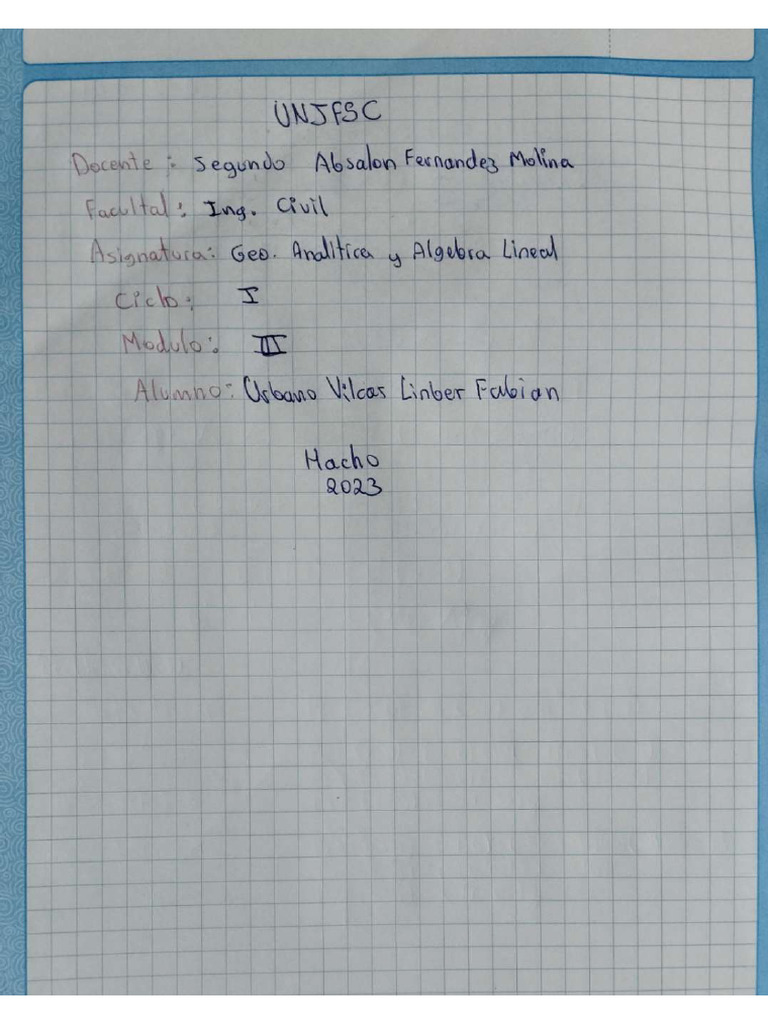 UNJFSC
Docente: Segundo Absalon Fernandez Molina
Facultal: Ing. Civil
Asignatura: Geo. Analitica y Algebra Lineal
Ciclo: I
Modulo: III
Alumno: Urbano Vilcas Linber Fabian
Hacho
2023